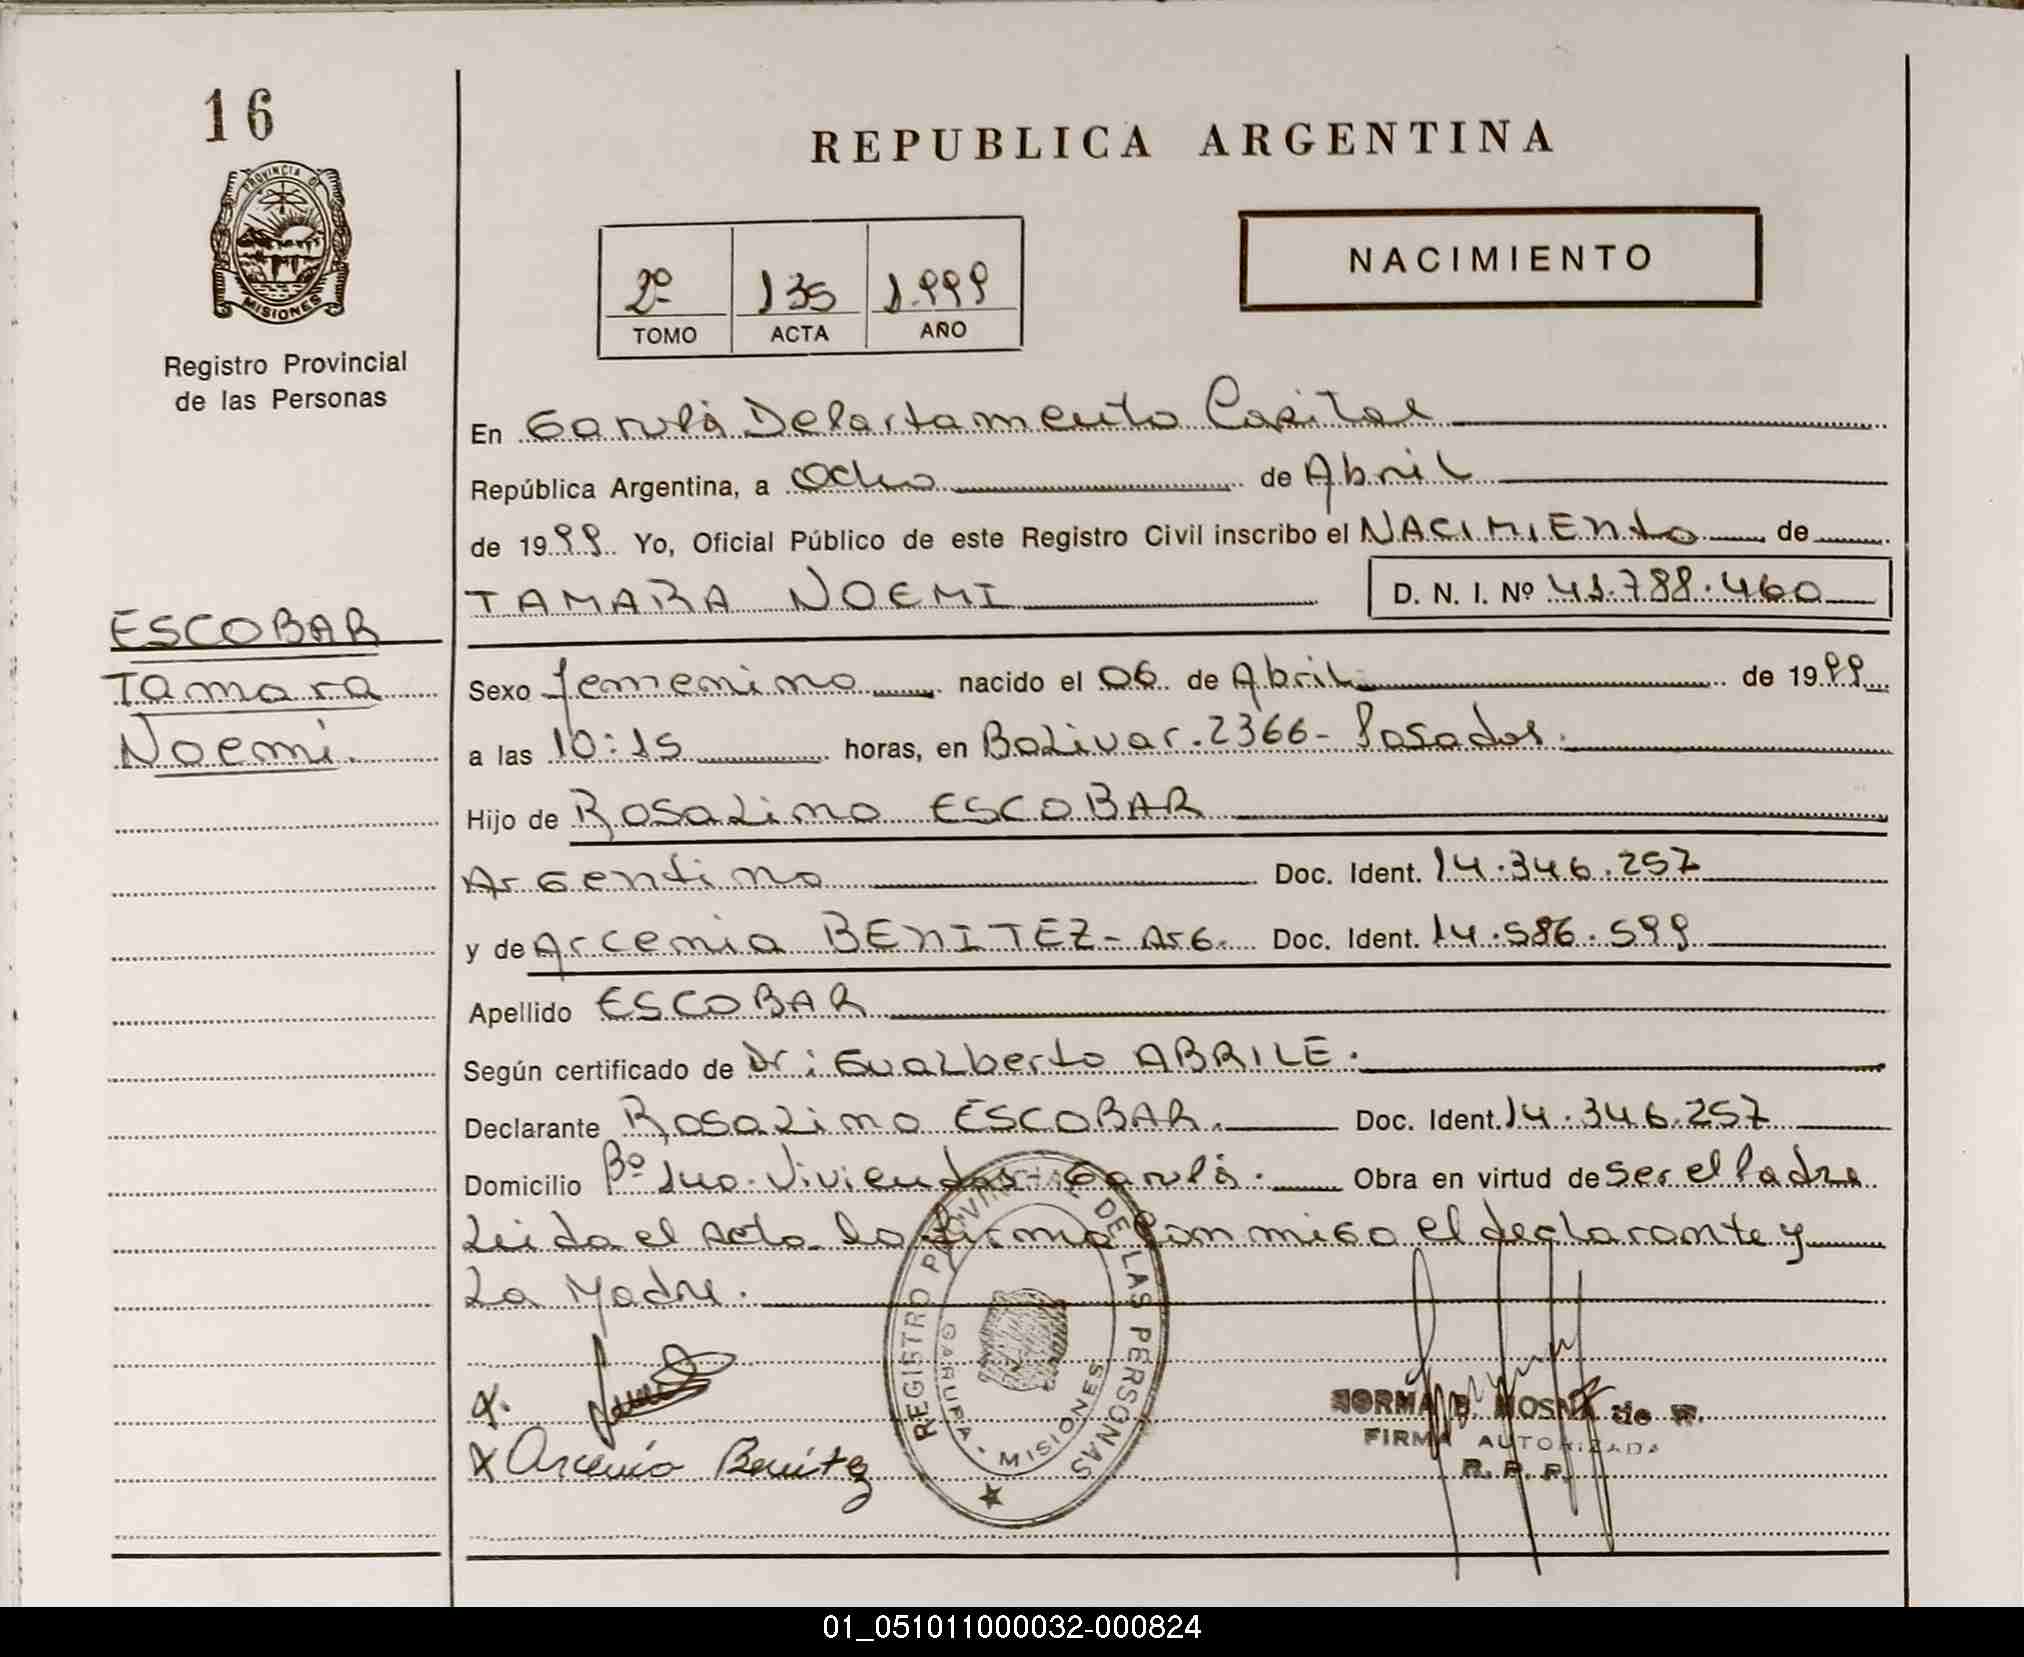 16
PROVINCIA DE
MISIONES
Registro Provincial
de las Personas
REPUBLICA ARGENTINA
2º 135 1.999
TOMO ACTA AÑO
NACIMIENTO
En Garupá Departamento Capital
República Argentina, a Ocho de Abril
de 1999 Yo, Oficial Público de este Registro Civil inscribo el NACIMIENTO de
TAMARA NOEMI D. N. I. Nº 41.788.460
ESCOBAR
Tamara
Noemi.
Sexo femenino nacido el 06 de Abril de 1999
a las 10:15 horas, en Bolivar. 2366- Posadas.
Hijo de Rosalino ESCOBAR
Argentino Doc. Ident. 14.346.257
y de Arcenia BENITEZ- Arg. Doc. Ident. 14.586.599
Apellido ESCOBAR
Según certificado de Dr: Gualberto ABRILE.
Declarante Rosalino ESCOBAR. Doc. Ident. 14.346.257
Domicilio Bº Viviendas- Garupá. Obra en virtud de ser el Padre
Leida el acta la firma conmigo el declarante y
La Madre.
REGISTRO PROVINCIAL DE LAS PERSONAS
GARUPA - MISIONES
X.
X Arcenia Benitez
NORMA B. de
FIRMA AUTORIZADA
R. P. P.
01_051011000032-000824